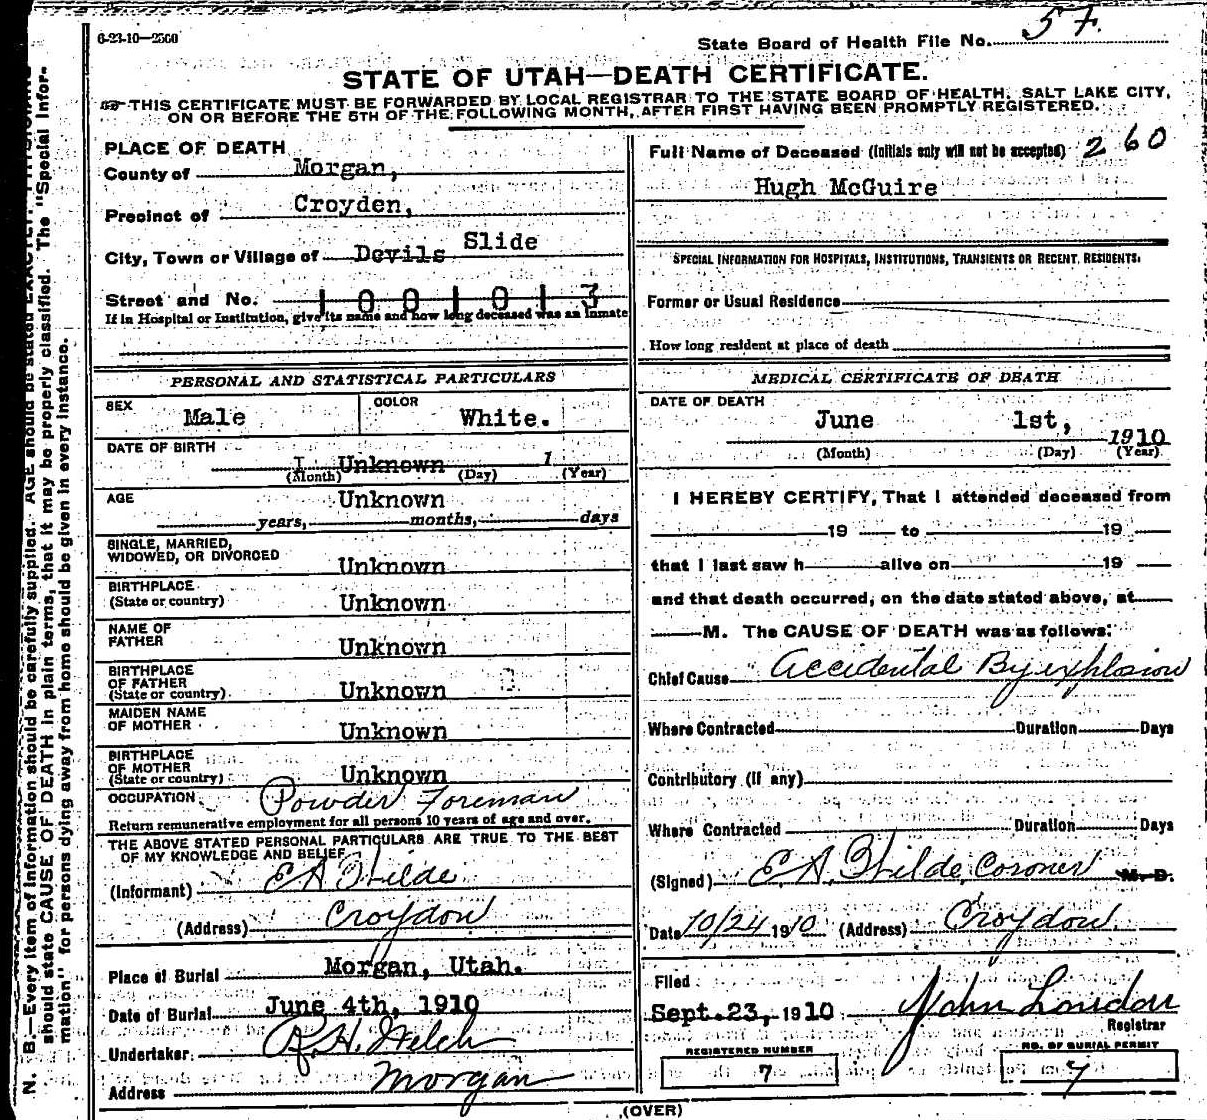 6-23-10—2500
State Board of Health File No. 57.
STATE OF UTAH—DEATH CERTIFICATE.
THIS CERTIFICATE MUST BE FORWARDED BY LOCAL REGISTRAR TO THE STATE BOARD OF HEALTH, SALT LAKE CITY,
ON OR BEFORE THE 5TH OF THE FOLLOWING MONTH, AFTER FIRST HAVING BEEN PROMPTLY REGISTERED.
PLACE OF DEATH
County of Morgan,
Precinct of Croyden,
City, Town or Village of Devils Slide
Street and No. 1001013
If in Hospital or Institution, give its name and how long deceased was an inmate
Full Name of Deceased (Initials only will not be accepted) 260
Hugh McGuire
SPECIAL INFORMATION FOR HOSPITALS, INSTITUTIONS, TRANSIENTS OR RECENT RESIDENTS.
Former or Usual Residence
How long resident at place of death
PERSONAL AND STATISTICAL PARTICULARS
SEX Male COLOR White.
DATE OF BIRTH Unknown 1
(Month) (Day) (Year)
AGE Unknown
years, months, days
SINGLE, MARRIED,
WIDOWED, OR DIVORCED Unknown
BIRTHPLACE
(State or country) Unknown
NAME OF
FATHER Unknown
BIRTHPLACE
OF FATHER
(State or country) Unknown
MAIDEN NAME
OF MOTHER Unknown
BIRTHPLACE
OF MOTHER
(State or country) Unknown
OCCUPATION Powder Foreman
Return remunerative employment for all persons 10 years of age and over.
THE ABOVE STATED PERSONAL PARTICULARS ARE TRUE TO THE BEST
OF MY KNOWLEDGE AND BELIEF
(Informant) E A Wilde
(Address) Croydon
Place of Burial Morgan, Utah.
Date of Burial June 4th, 1910
Undertaker A. H. Welch
Address Morgan
MEDICAL CERTIFICATE OF DEATH
DATE OF DEATH
June 1st, 1910
(Month) (Day) (Year)
I HEREBY CERTIFY, That I attended deceased from
19 to 19
that I last saw h alive on 19
and that death occurred, on the date stated above, at
M. The CAUSE OF DEATH was as follows:
Chief Cause Accidental By explosion
Where Contracted Duration Days
Contributory (if any)
Where Contracted Duration Days
(Signed) E. A. Wilde, Coroner M. D.
Date 10/24 1910 (Address) Croydon
Filed
Sept. 23, 1910 John London
Registrar
REGISTERED NUMBER
7
NO. OF BURIAL PERMIT
7
(OVER)
N. B.—Every item of information should be carefully supplied. AGE should be stated EXACTLY. PHYSICIANS
should state CAUSE OF DEATH in plain terms, that it may be properly classified. The "Special Infor-
mation" for persons dying away from home should be given in every instance.